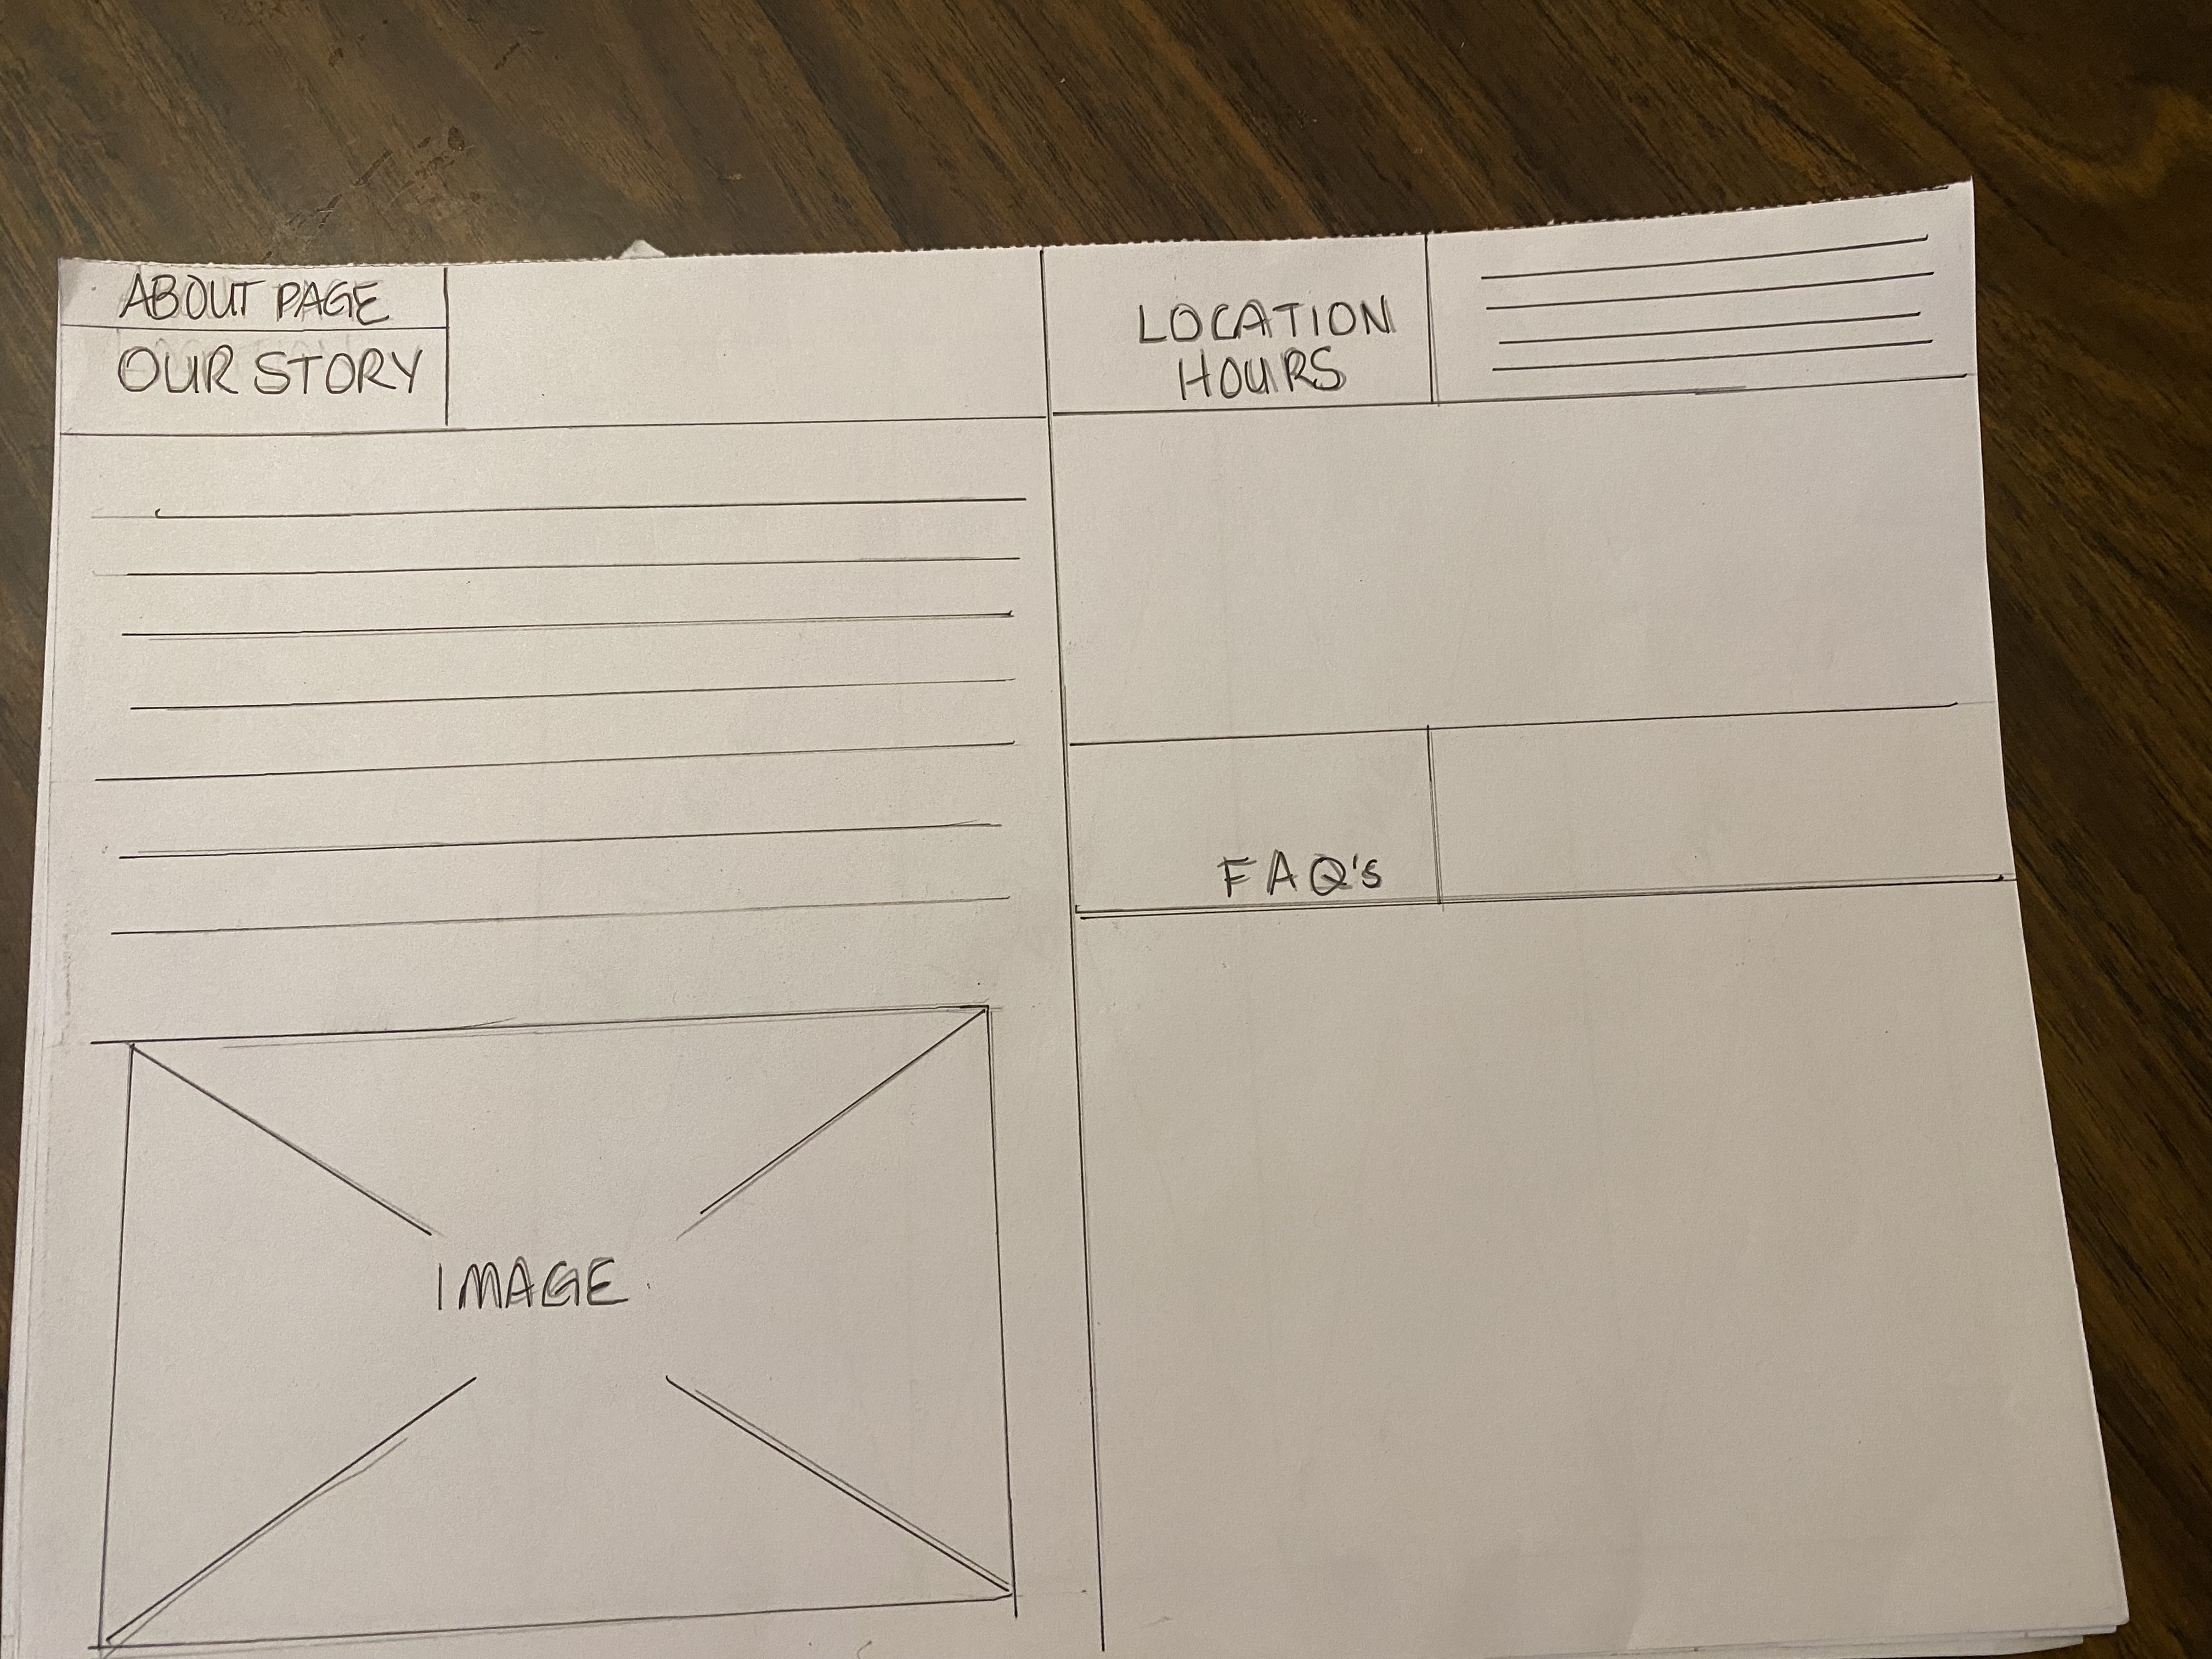 ABOUT PAGE
OUR STORY
IMAGE
LOCATION
HOURS
FAQ's